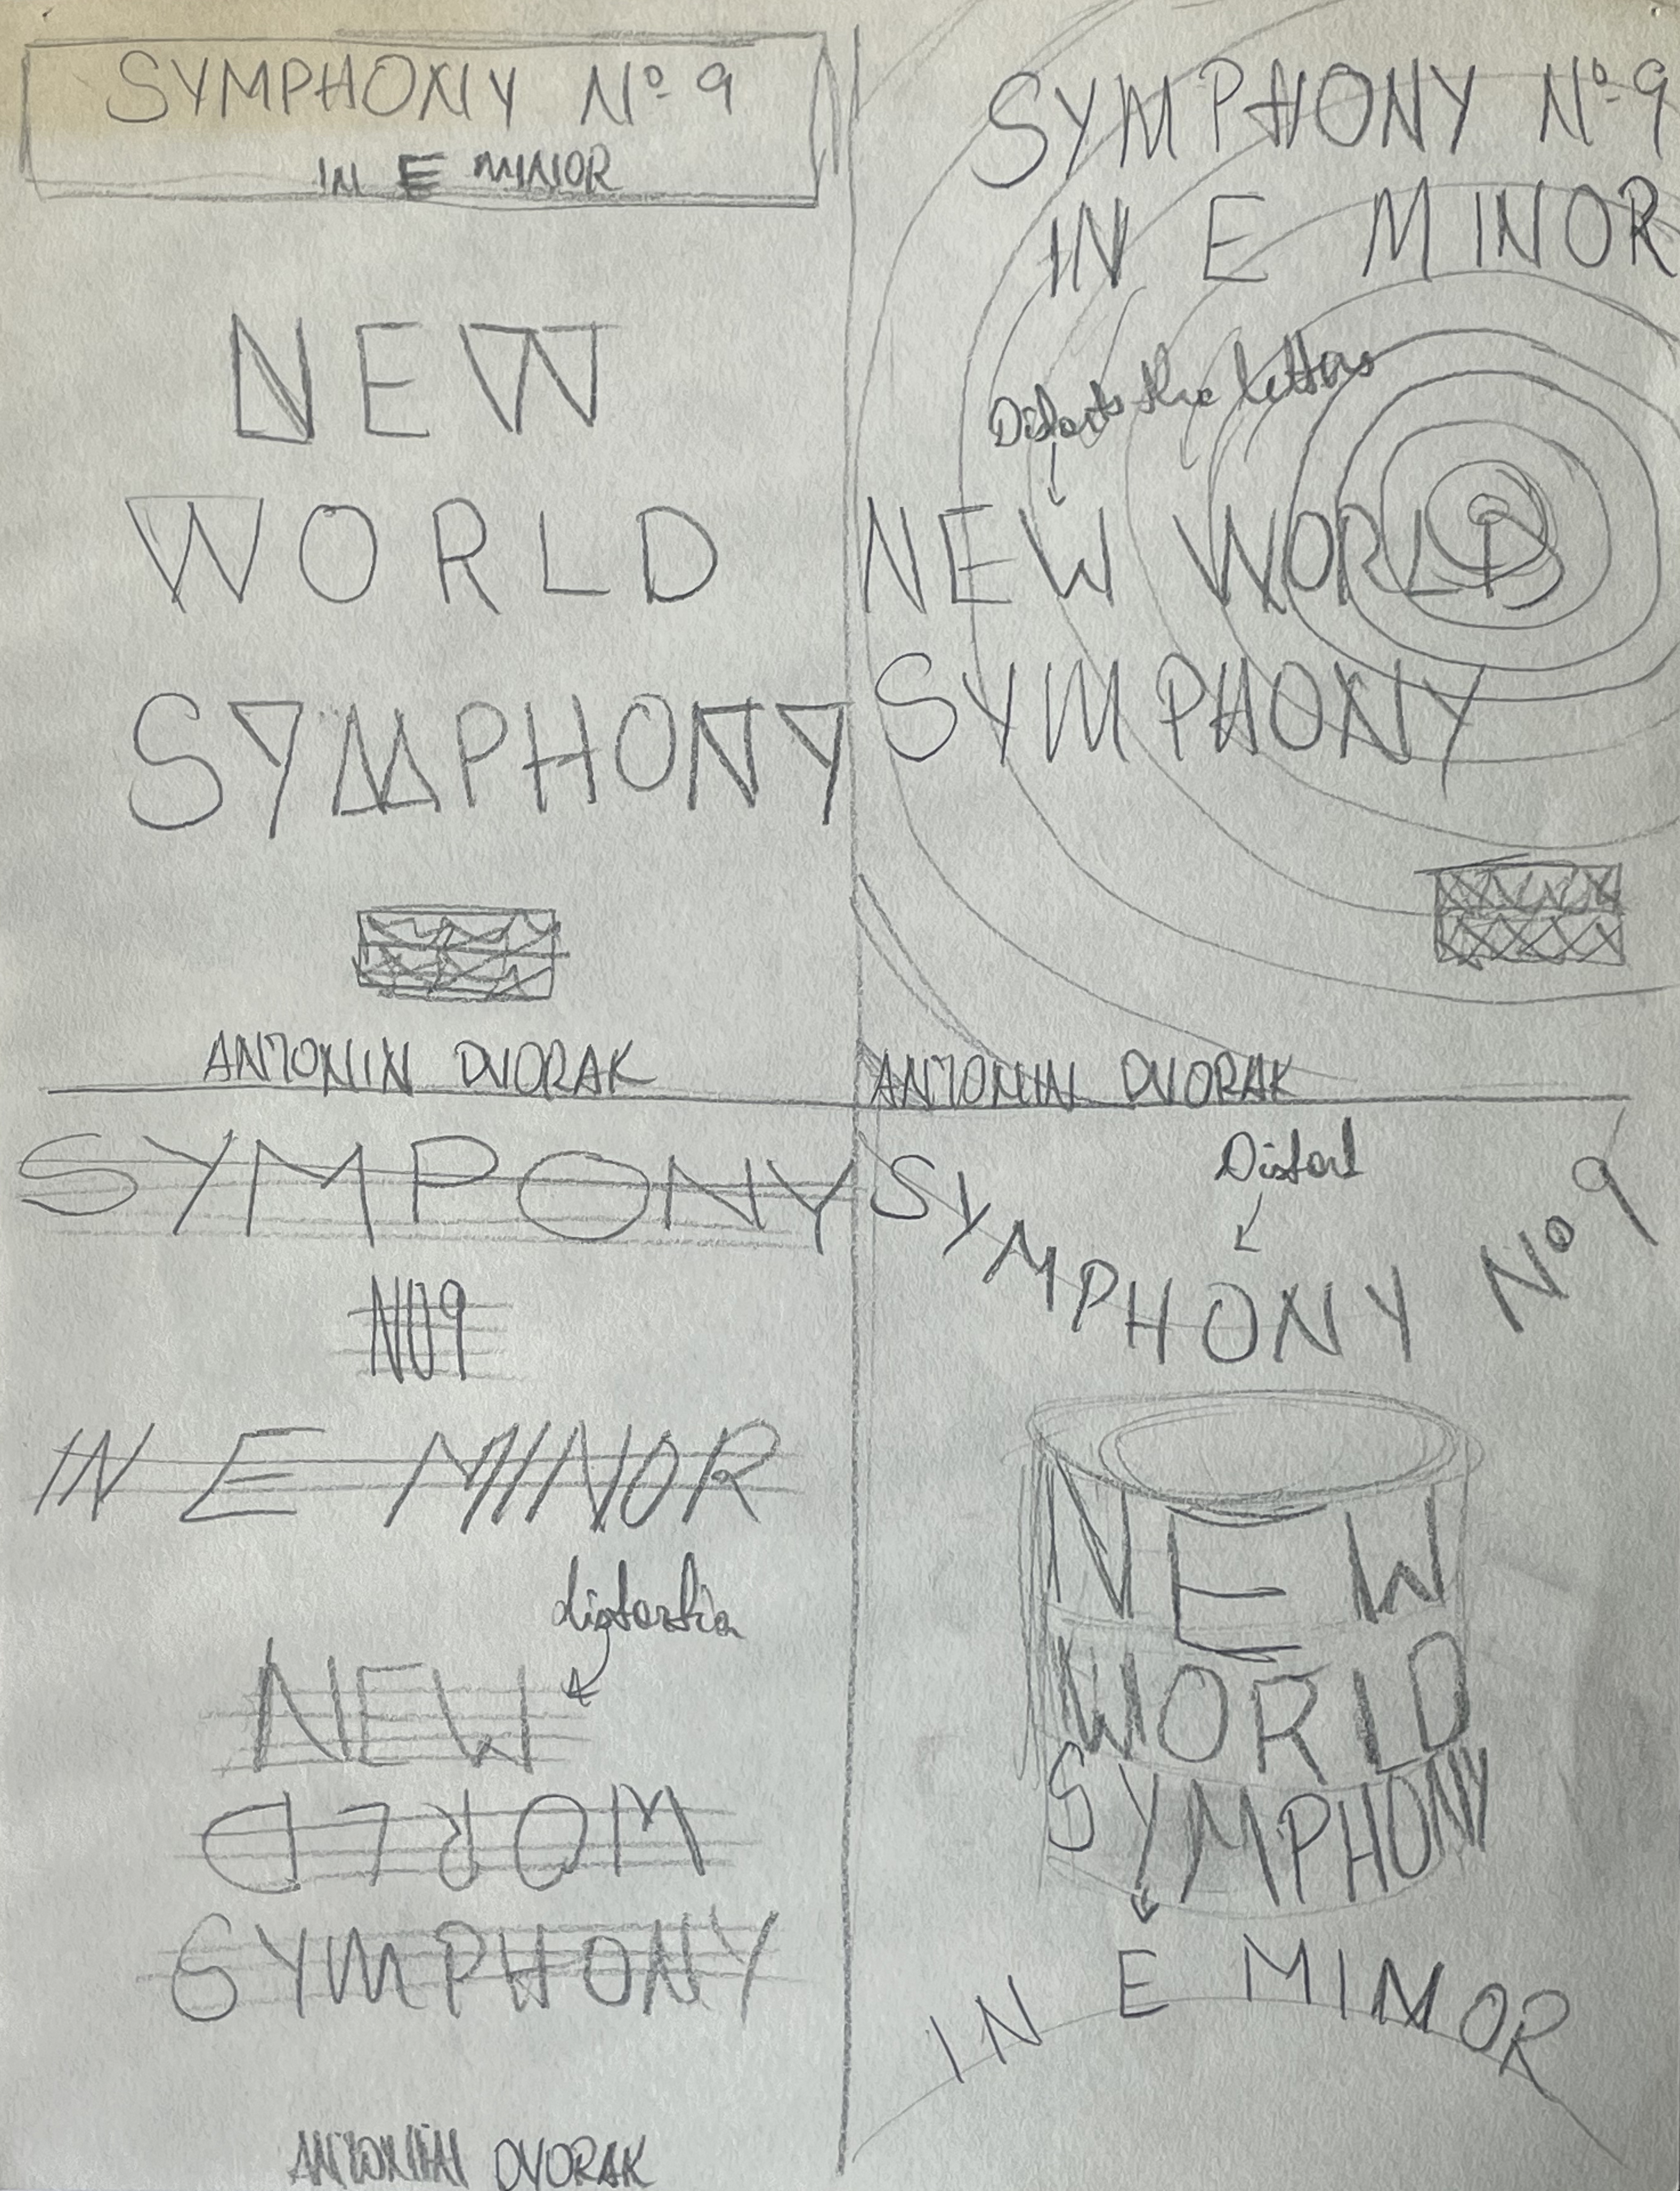 SYMPHONY Nº 9
IN E MINOR
NEW
WORLD
SYMPHONY
ANTONIN DVORAK
SYMPHONY Nº 9
IN E MINOR
Distorts the letters
NEW WORLD
SYMPHONY
ANTONIN DVORAK
SYMPONY
NO9
IN E MINOR
distortion
NEW
WORLD
SYMPHONY
ANTONIN DVORAK
Distort
SYMPHONY Nº 9
NEW
WORLD
SYMPHONY
IN E MINOR